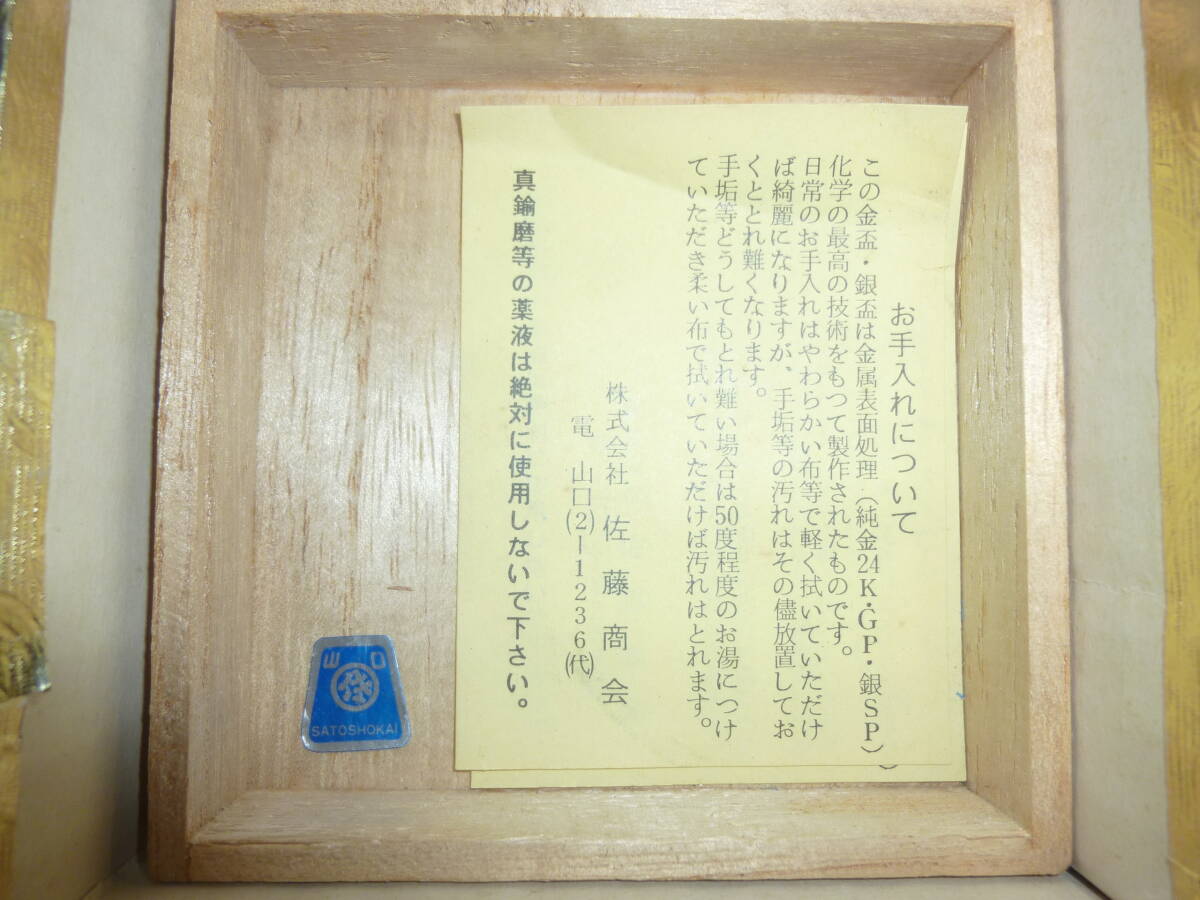 お手入れについて
この金盃・銀盃は金属表面処理（純金24K・GP・銀SP）
化学の最高の技術をもつて製作されたものです。
日常のお手入れはやわらかい布等で軽く拭いていただけ
ば綺麗になりますが、手垢等の汚れはその儘放置してお
くととれ難くなります。
手垢等どうしてもとれ難い場合は50度程度のお湯につけ
ていただき柔い布で拭いていただけば汚れはとれます。
株式会社 佐藤商会
電 山口(2)ー1236(代)
真鍮磨等の薬液は絶対に使用しないで下さい。
山口
佐
SATOSHOKAI